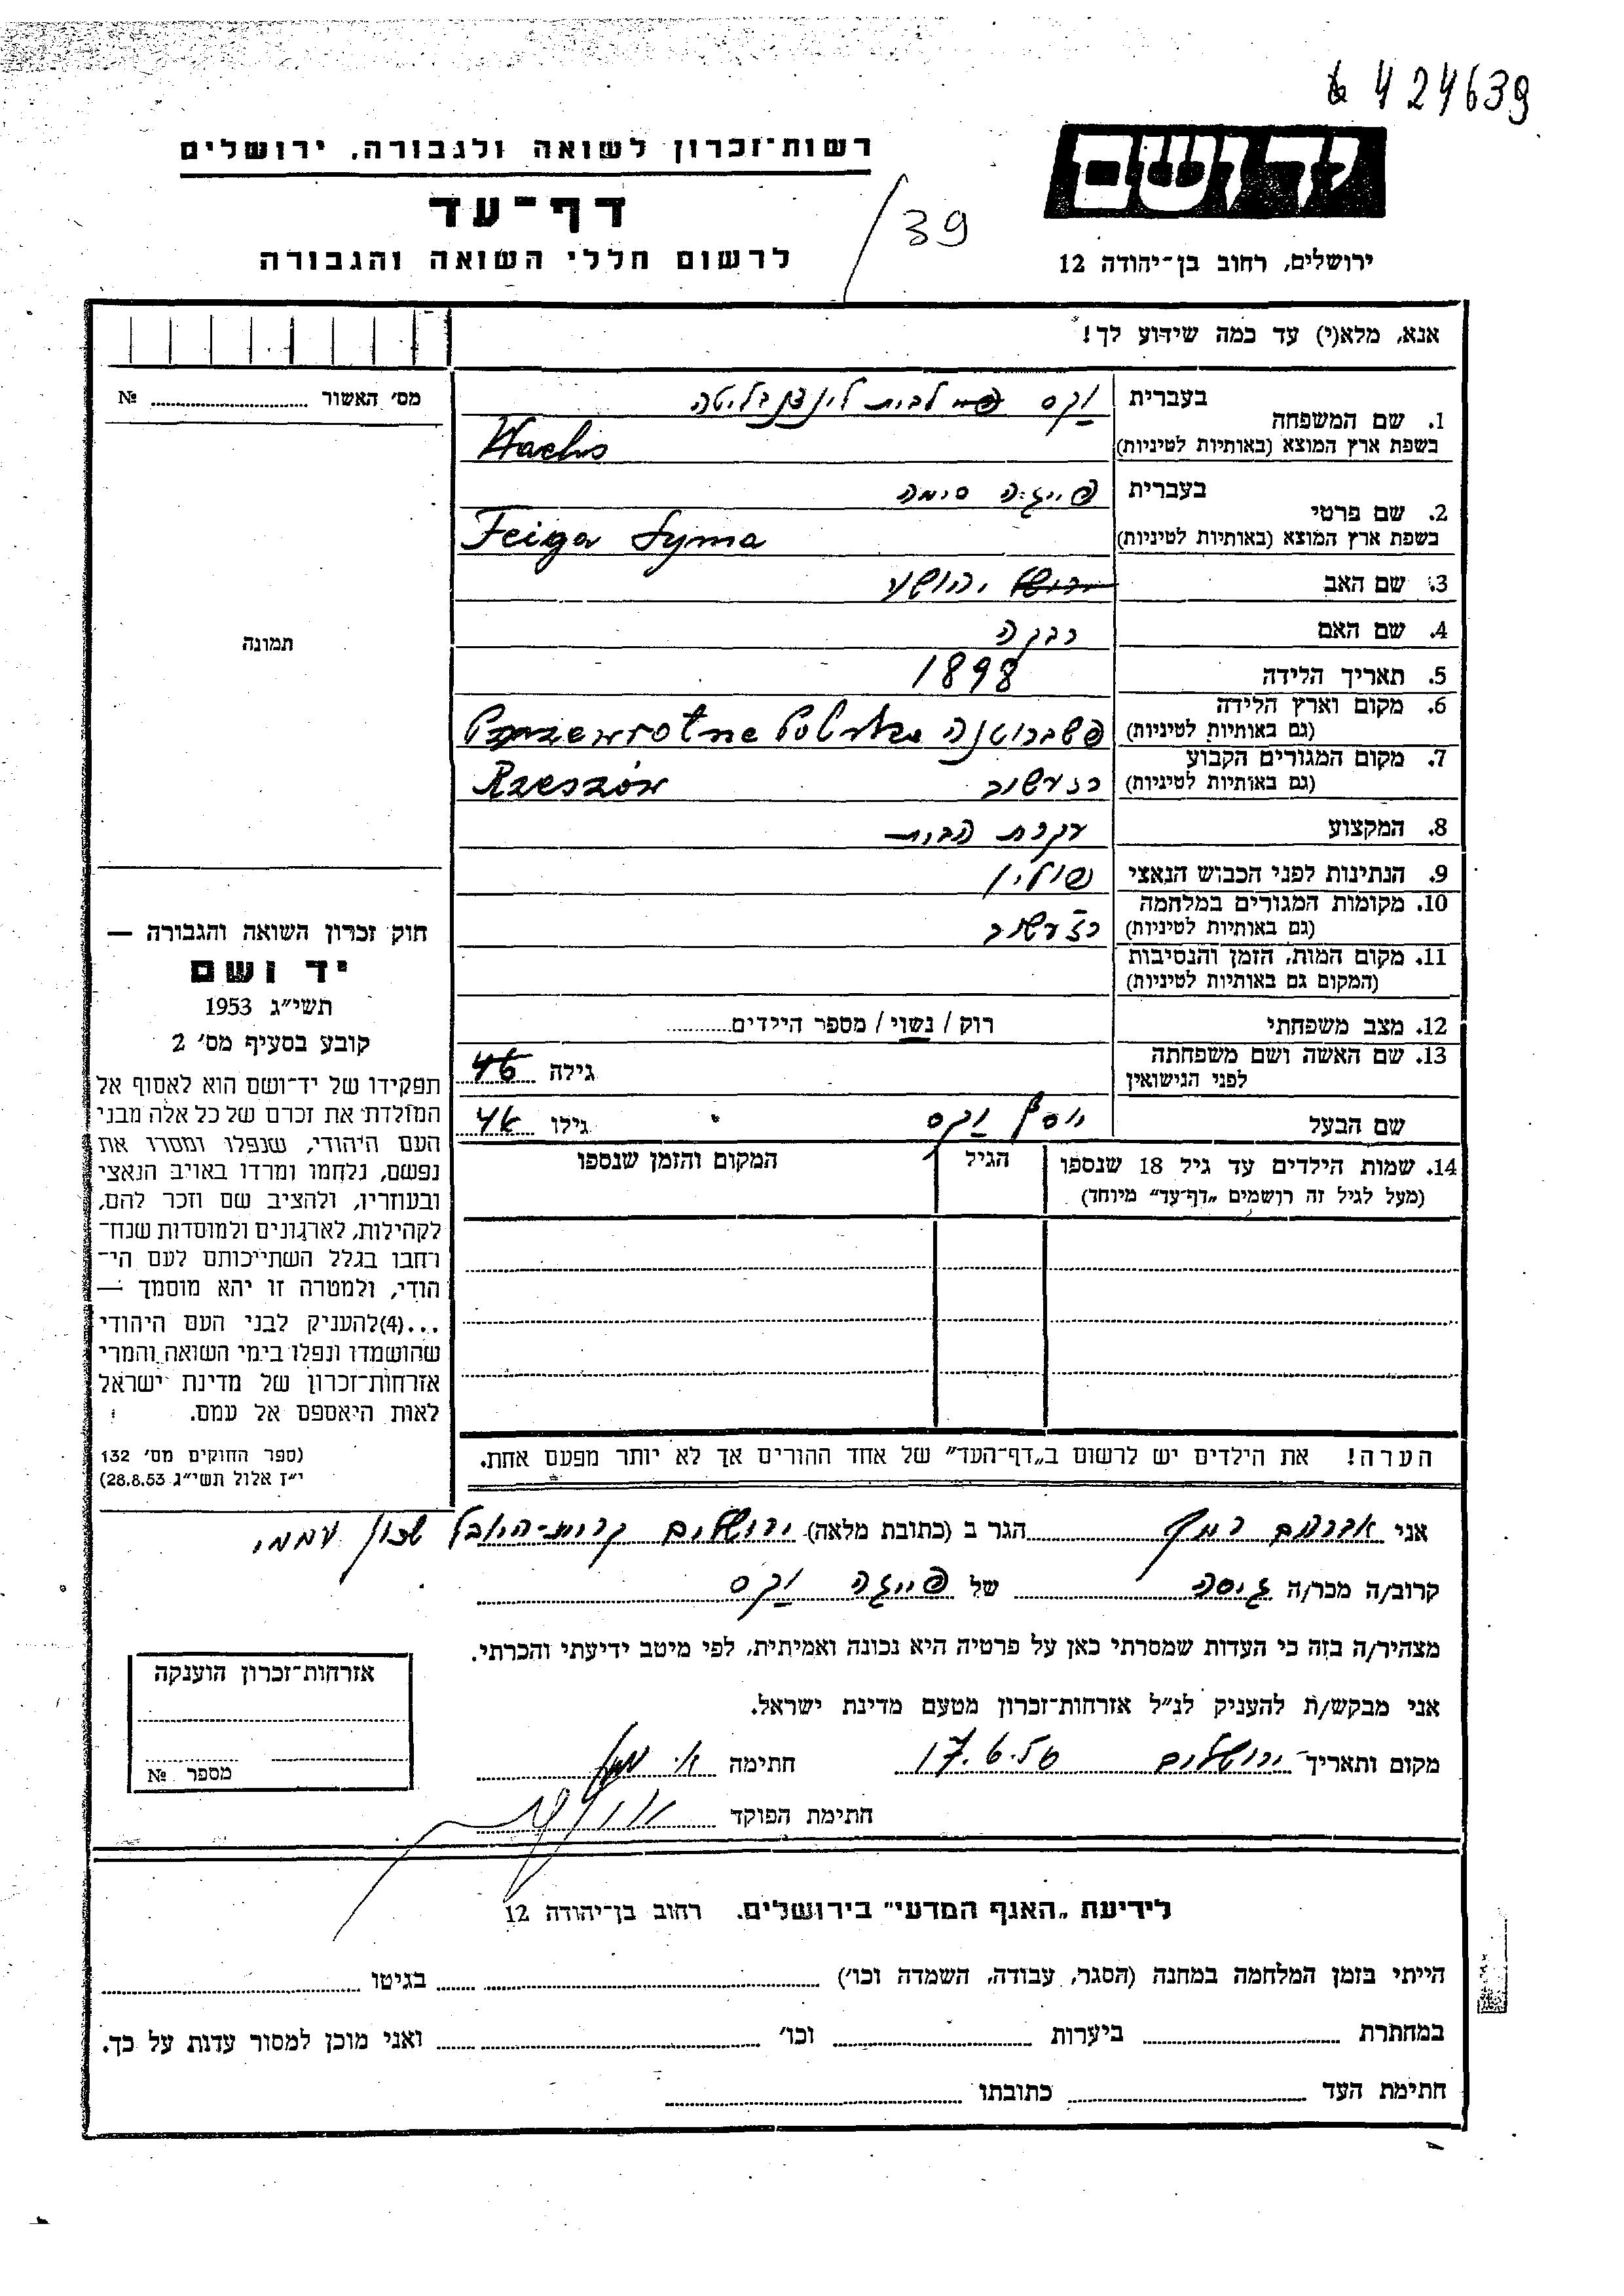 424639
רשות־זכרון לשואה ולגבורה, ירושלים
יד ושם
דף־עד
39
לרשום חללי השואה והגבורה
ירושלים, רחוב בן־יהודה 12
אנא, מלא(י) עד כמה שידוע לך!
מס׳ האשור № ........
1. שם המשפחה
בעברית וקס לבית
בשפת ארץ המוצא (באותיות לטיניות) Wachs
2. שם פרטי
בעברית פייגה סימה
בשפת ארץ המוצא (באותיות לטיניות) Feiga Syma
3. שם האב יהושע
4. שם האם רבקה
5. תאריך הלידה 1898
6. מקום וארץ הלידה
(גם באותיות לטיניות) פשברוטנה Przewrotne
7. מקום המגורים הקבוע
(גם באותיות לטיניות) רזעשוב Rzeszów
8. המקצוע עקרת הבית
9. הנתינות לפני הכבוש הנאצי פולין
10. מקומות המגורים במלחמה
(גם באותיות לטיניות) רזעשוב
11. מקום המות, הזמן והנסיבות
(המקום גם באותיות לטיניות)
12. מצב משפחתי רוק / נשוי / מספר הילדים..........
13. שם האשה ושם משפחתה
לפני הנישואין גילה 46
שם הבעל יוסף וקס גילו
14. שמות הילדים עד גיל 18 שנספו
(מעל לגיל זה רושמים „דף־עד״ מיוחד)
הגיל
המקום והזמן שנספו
הערה! את הילדים יש לרשום ב„דף־העד״ של אחד ההורים אך לא יותר מפעם אחת.
תמונה
חוק זכרון השואה והגבורה —
יד ושם
תשי״ג 1953
קובע בסעיף מס׳ 2
תפקידו של יד־ושם הוא לאסוף אל
המולדת את זכרם של כל אלה מבני
העם היהודי, שנפלו ומסרו את
נפשם, נלחמו ומרדו באויב הנאצי
ובעוזריו, ולהציב שם וזכר להם,
לקהילות, לארגונים ולמוסדות שנח־
רחבו בגלל השתייכותם לעם הי־
הודי, ולמטרה זו יהא מוסמך —
...(4)להעניק לבני העם היהודי
שהושמדו ונפלו בימי השואה והמרי
אזרחות־זכרון של מדינת ישראל
לאות היאספם אל עמם.
(ספר החוקים מס׳ 132
י״ז אלול תשי״ג 28.8.53)
אני אברהם הגר ב (כתובת מלאה) ירושלים קרית־היובל שכון עממי
קרוב/ה מכר/ה גיסה של פייגה וקס
מצהיר/ה בזה כי העדות שמסרתי כאן על פרטיה היא נכונה ואמיתית, לפי מיטב ידיעתי והכרתי.
אני מבקש/ת להעניק לנ״ל אזרחות־זכרון מטעם מדינת ישראל.
מקום ותאריך ירושלים 17.6.56 חתימה
חתימת הפוקד
אזרחות־זכרון הוענקה
מספר №
לידיעת „האגף המדעי״ בירושלים, רחוב בן־יהודה 12
הייתי בזמן המלחמה במחנה (הסגר, עבודה, השמדה וכו׳) ........ בגיטו ........
במחתרת ........ ביערות ........ וכו׳ ........ ואני מוכן למסור עדות על כך.
חתימת העד ........ כתובתו ........